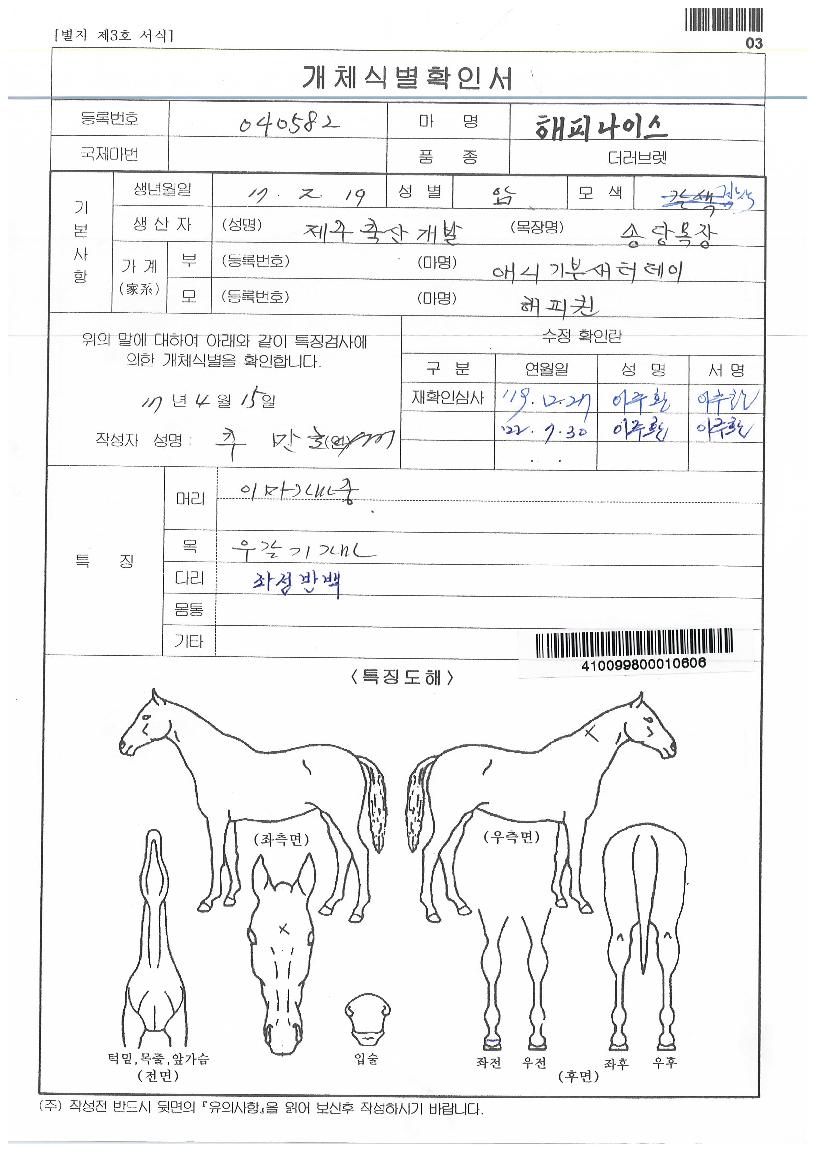 [별지 제3호 서식]
03
개체식별확인서
등록번호 040582 마 명 해피나이스
국제마번 품 종 더러브렛
기본사항
생년월일 17. 2. 19 성 별 암 모 색
생 산 자 (성명) 제주축산개발 (목장명) 송당목장
가계 (家系) 부 (등록번호) (마명)
모 (등록번호) (마명) 해피퀸
위의 말에 대하여 아래와 같이 특징검사에
의한 개체식별을 확인합니다.
17년 4월 15일
작성자 성명 : 추 만 호
수정 확인란
구 분 연월일 성 명 서 명
재확인심사 '19. 12. 27 이주환 이주환
'22. 7. 30 이주환 이주환
. .
특 징
머리 이마가마중
목 우갈기가마
다리 좌점반백
몸통
기타
410099800010606
<특징도해>
(좌측면) (우측면)
턱밑,목줄,앞가슴
(전면)
입술
좌전 우전 좌후 우후
(후면)
(주) 작성전 반드시 뒷면의 『유의사항』을 읽어 보신후 작성하시기 바랍니다.